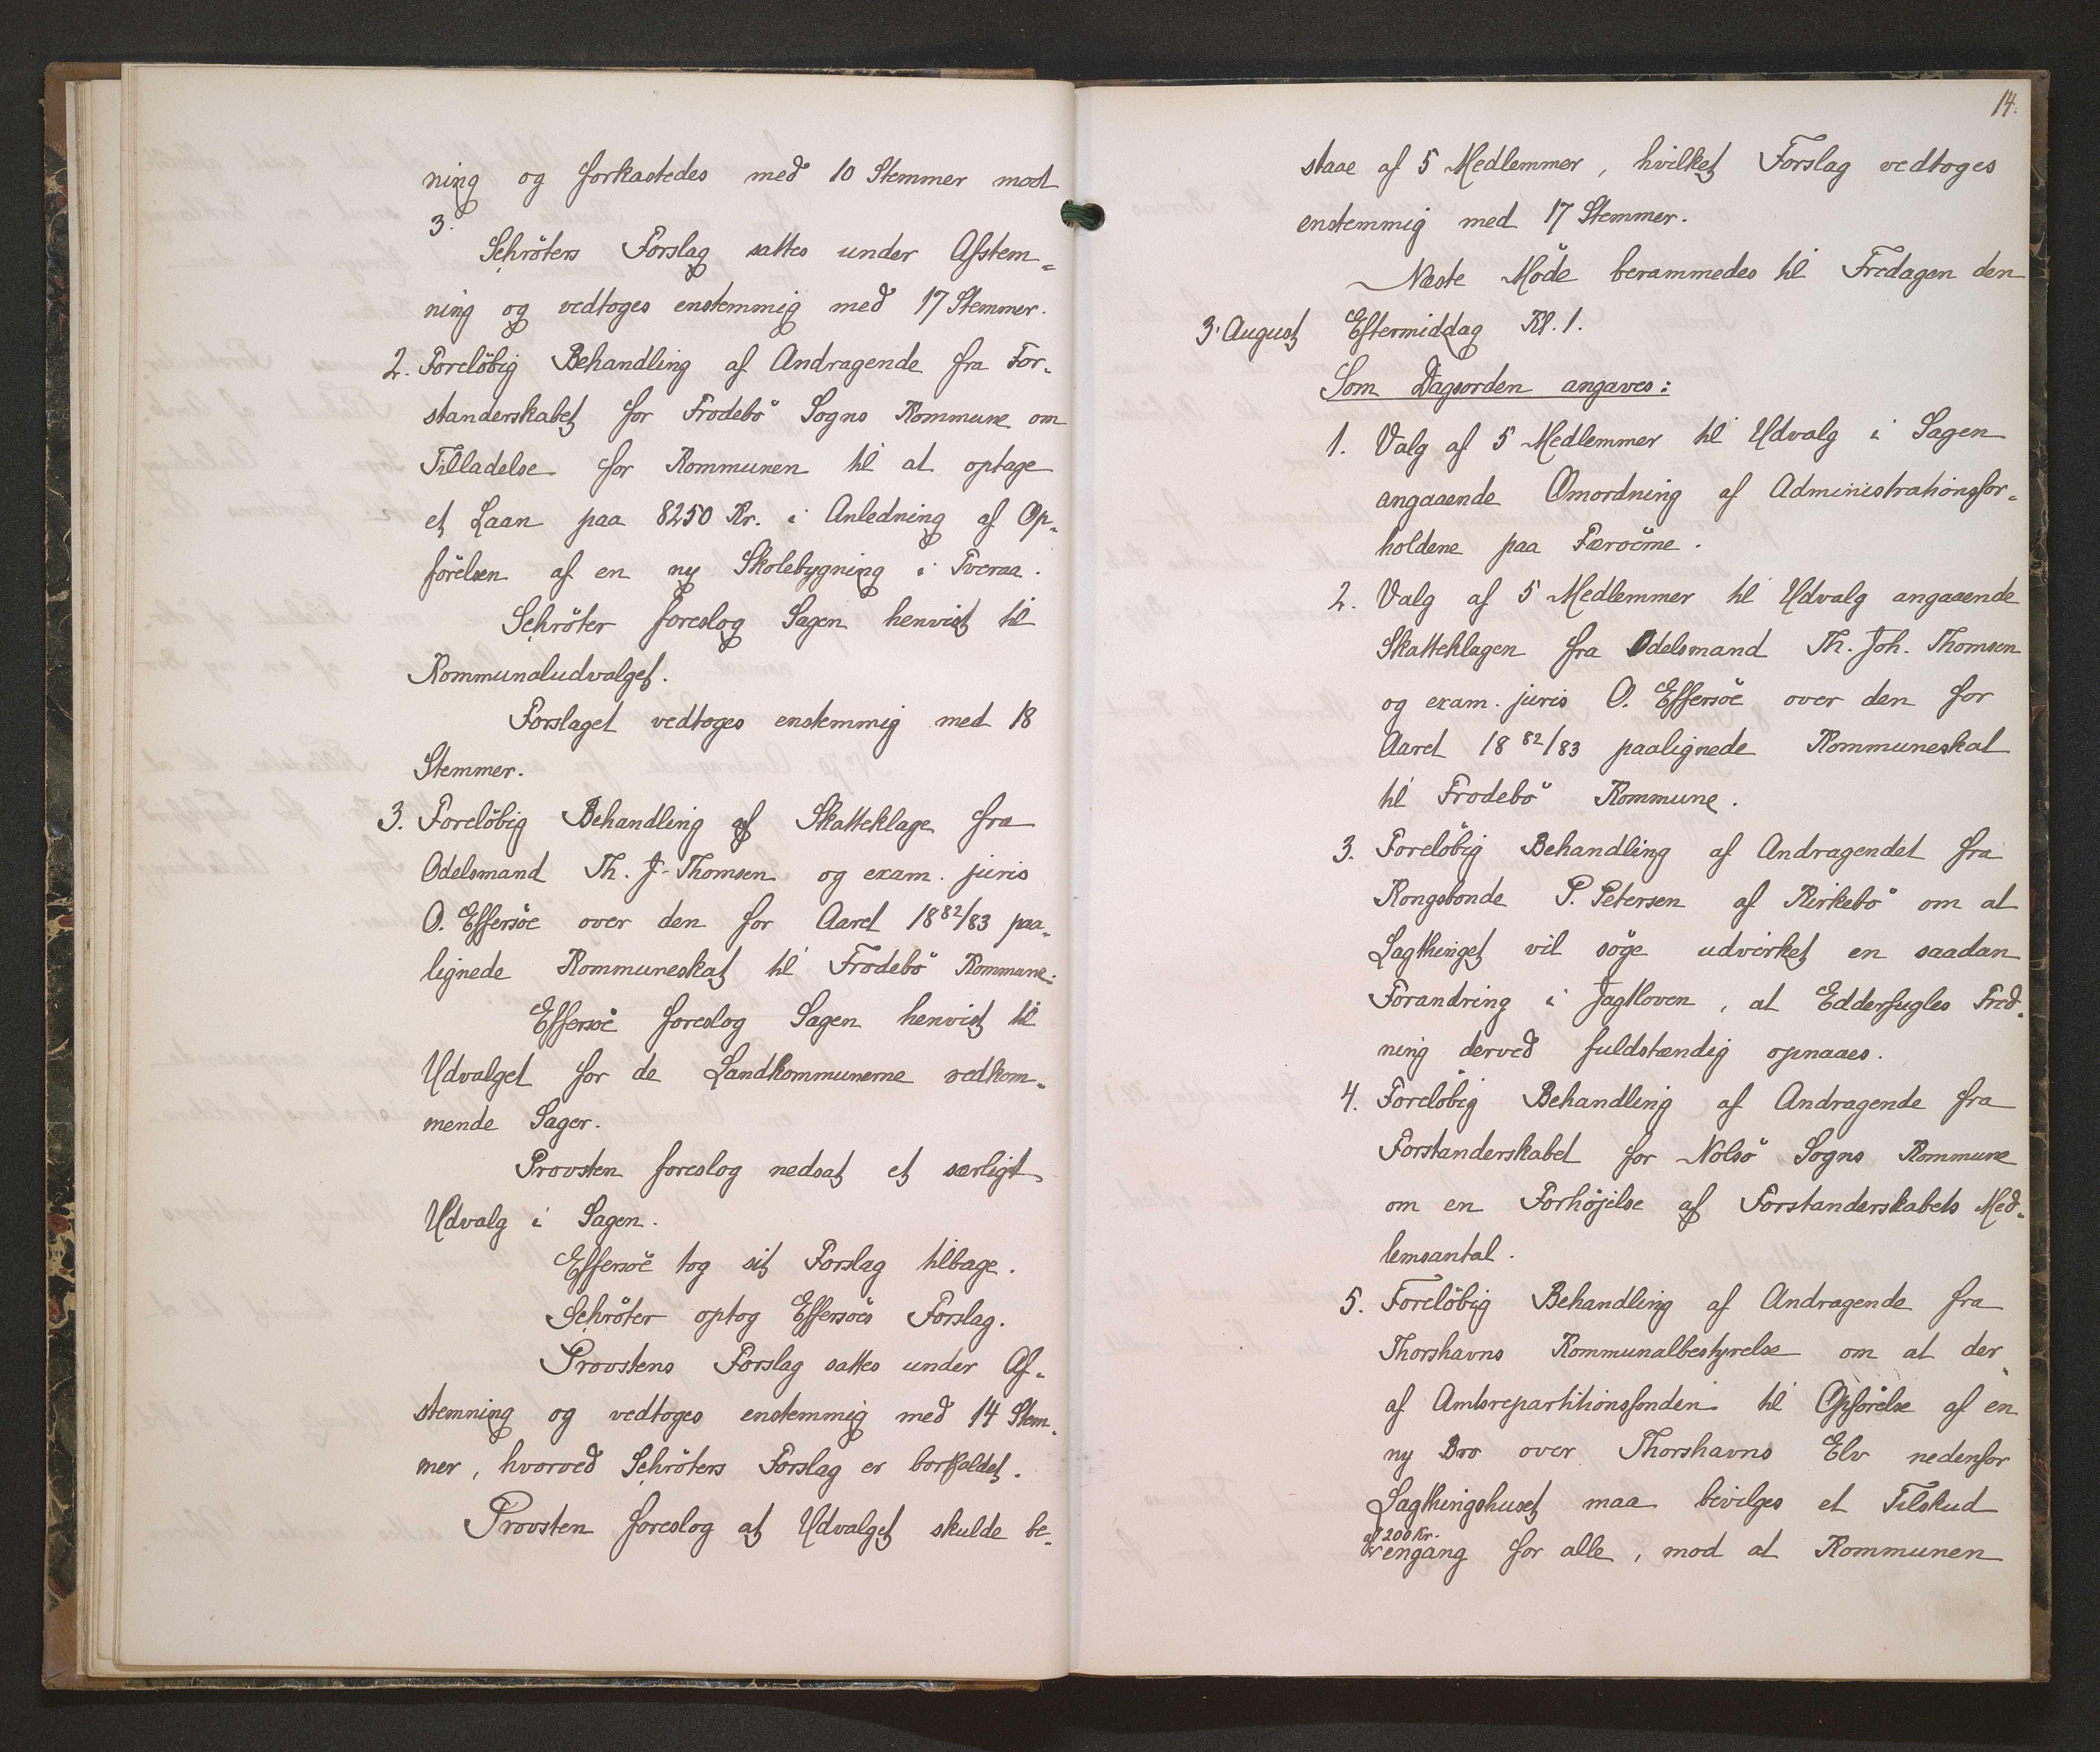 ning og forkastedes med 10 Stemmer mod
3.
Schröters Forslag sattes under Afstem-
ning og vedtoges enstemmig med 17 Stemmer.
2. Foreløbig Behandling af Andragende fra For-
standerskabet for Frodebö Sogns Kommune om
Tilladelse for Kommunen til at optage
et Laan paa 8250 Kr. i Anledning af Op-
förelsen af en ny Skolebygning i Tveraa.
Schröter foreslog Sagen henvist til
Kommunaludvalget.
Forslaget vedtoges enstemmig med 18
Stemmer.
3. Forelöbig Behandling af Skatteklage fra
Odelsmand Th. J. Thomsen og exam. juris
O. Effersöe over den for Aaret 1882/83 paa-
lignede Kommuneskat til Frodebö Kommune.
Effersöe foreslog Sagen henvist til
Udvalget for de Landkommunerne vedkom-
mende Sager.
Provsten foreslog nedsat et særligt
Udvalg i Sagen.
Effersöe tog sit Forslag tilbage.
Schröter optog Effersöes Forslag.
Provstens Forslag sattes under Af-
stemning og vedtoges enstemmig med 14 Stem-
mer, hvorved Schröters Forslag er bortfaldet.
Provsten foreslog at Udvalget skulde be-
14.
staae af 5 Medlemmer, hvilket Forslag vedtoges
enstemmig med 17 Stemmer.
Næste Möde berammedes til Fredagen den
3. August Eftermiddag Kl. 1.
Som Dagsorden angaves:
1. Valg af 5 Medlemmer til Udvalg i Sagen
angaaende Omordning af Administrationsfor-
holdene paa Færöerne.
2. Valg af 5 Medlemmer til Udvalg angaaende
Skatteklagen fra Odelsmand Th. Joh. Thomsen
og exam. juris O. Effersöe over den for
Aaret 1882/83 paalignede Kommuneskat
til Frodebö Kommune.
3. Forelöbig Behandling af Andragendet fra
Kongsbonde P. Petersen af Kirkebö om at
Lagthinget vil söge udvirket en saadan
Forandring i Jagtloven, at Edderfugles Fred-
ning derved fuldstændig opnaaes.
4. Forelöbig Behandling af Andragende fra
Forstanderskabet for Nolsö Sogns Kommune
om en Forhöjelse af Forstanderskabets Med-
lemsantal.
5. Forelöbig Behandling af Andragende fra
Thorshavns Kommunalbestyrelse om at der
af Amtsrepartitionsfonden til Opförelse af en
ny Bro over Thorshavns Elv nedenfor
Lagthingshuset maa bevilges et Tilskud
af 200 Kr.
engang for alle, mod at Kommunen